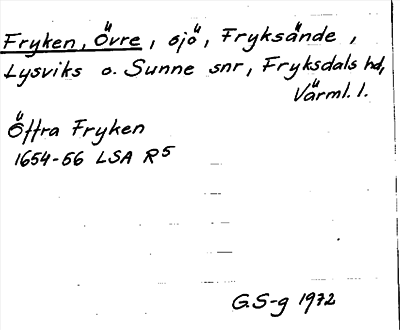 Fryken, Övre, sjö, Fryksände,
Lysviks o. Sunne snr, Fryksdals hd,
Värml. l.
Öffra Fryken
1654-56 LSA R5
G.S-g 1972